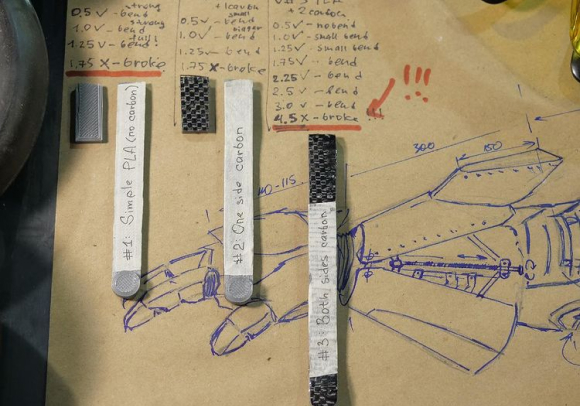 strong
0.5V - bend
strong
1.0V - bend
full!
1.25V - bend!
1.75 X - broke
+ 1 carbon
small
0.5V - bend
bigger
1.0V - bend
1.25V - bend
1.75 X - broke
+ 2 carbon
0.5V - no bend
1.0V - small bend
1.25V - small bend
1.75V - bend
2.25 - bend
2.5 - bend
3.0V - bend
4.5 X - broke !!!
!!!
#1: Simple PLA (no carbon)
#2: One side carbon
#3: Both sides carbon
300
150